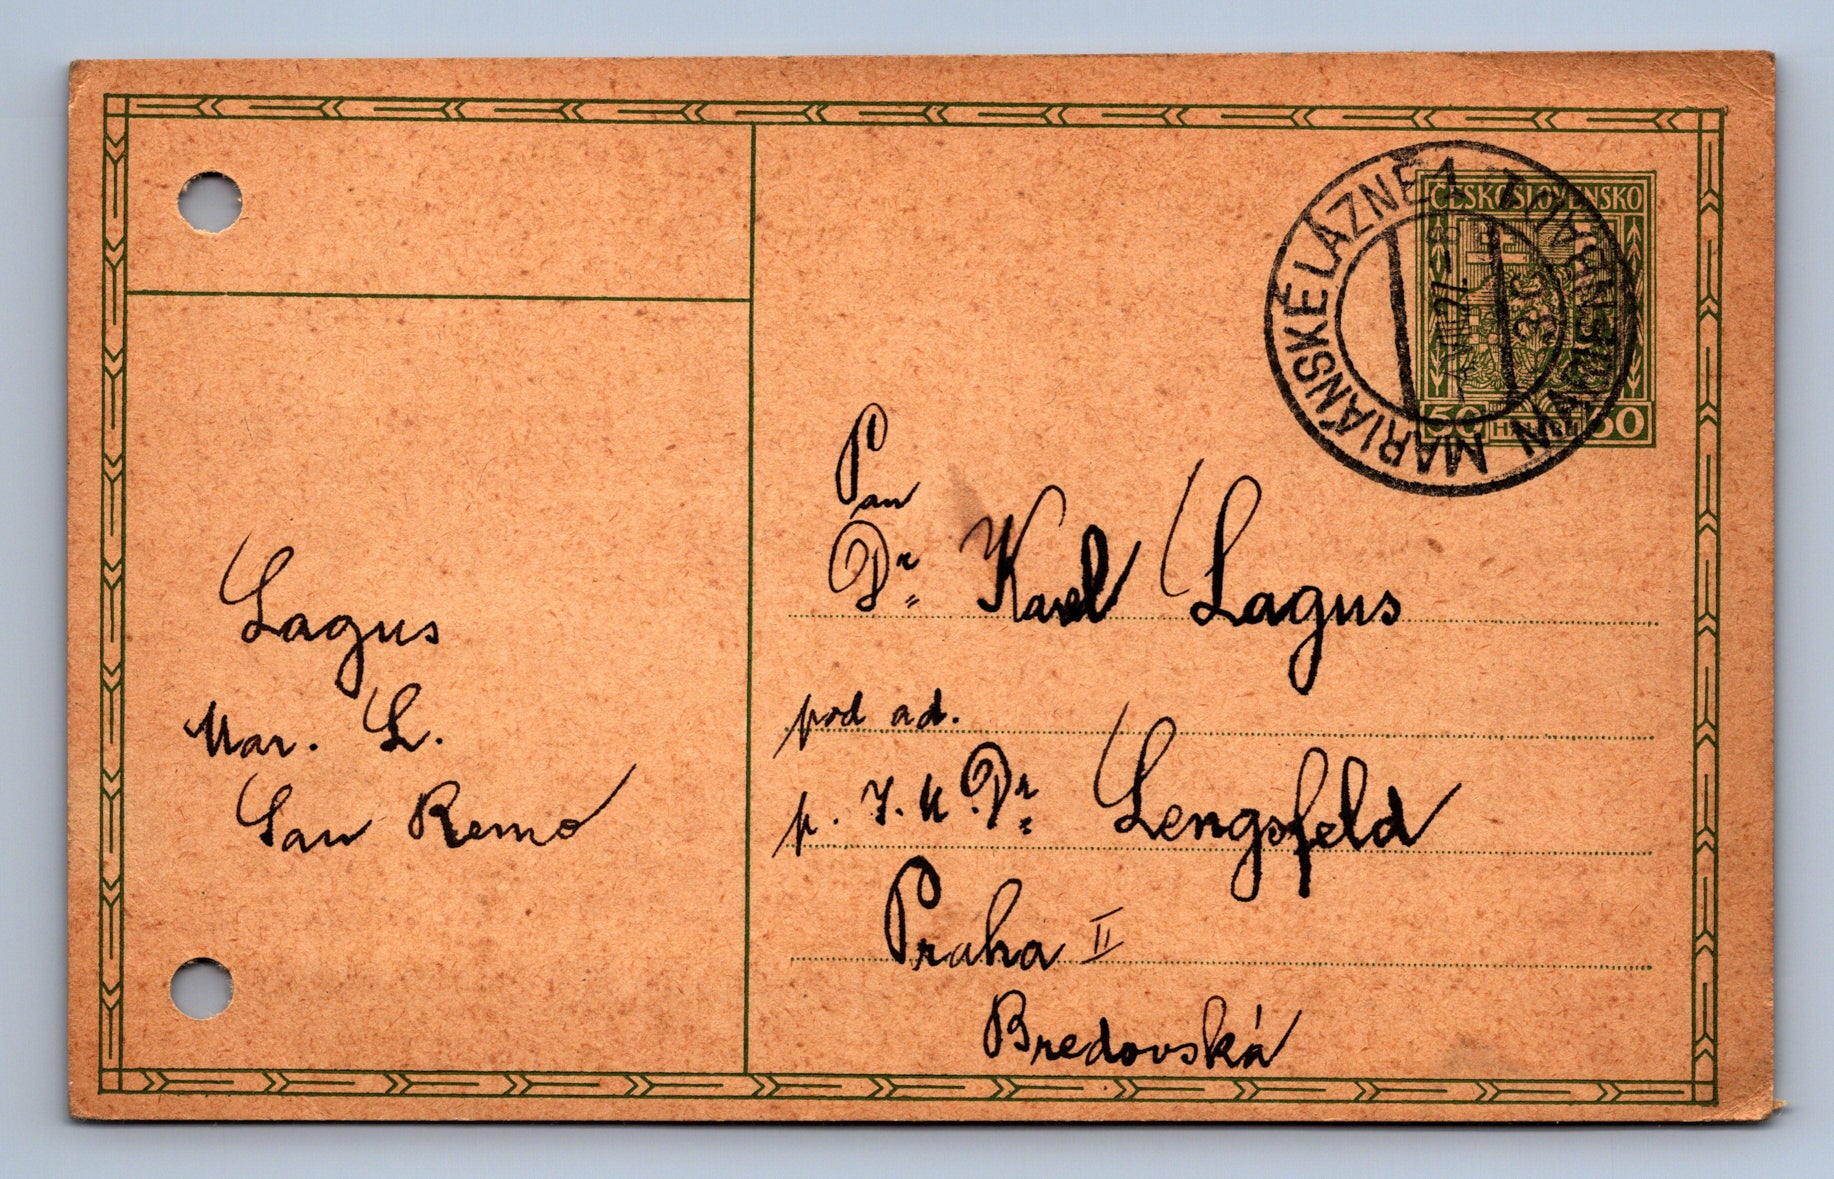 ČESKOSLOVENSKO
50 HALÉŘŮ 50
MARIÁNSKÉ LÁZNĚ 1
MARIENBAD 1
Pan
Dr Karel Lagus
pod ad.
p. J. U. Dr Lengsfeld
Praha II
Bredovská
Lagus
Mar. L.
San Remo